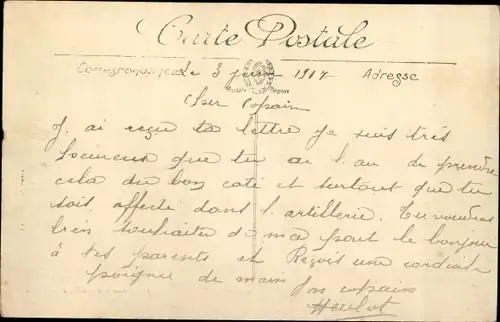 Carte Postale
Correspondance Le 3 1917 Adresse
Modèle Déposé
Cher Copain
J. ai reçu ta lettre Je suis très
que tu ai l. air de prendre
cela du bon coté et surtout que tu
soit affecté dans l. artillerie. Tu voudras
bien souhaiter de ma part le bonjour
à tes parents et Reçois une cordiale
poignée de main Ton copain